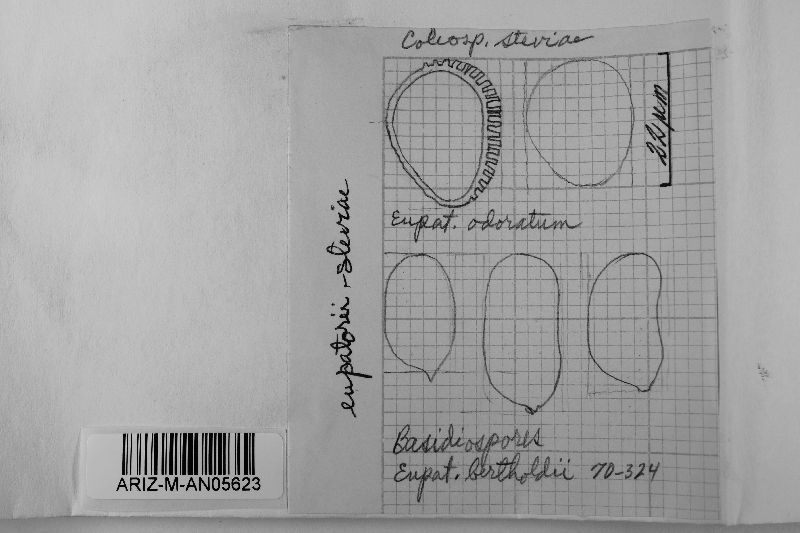 Coleosp. steviae
22 µm
Eupat. odoratum
eupatorii - steviae
Basidiospores
Eupat. bertholdii 70-324
ARIZ-M-AN05623